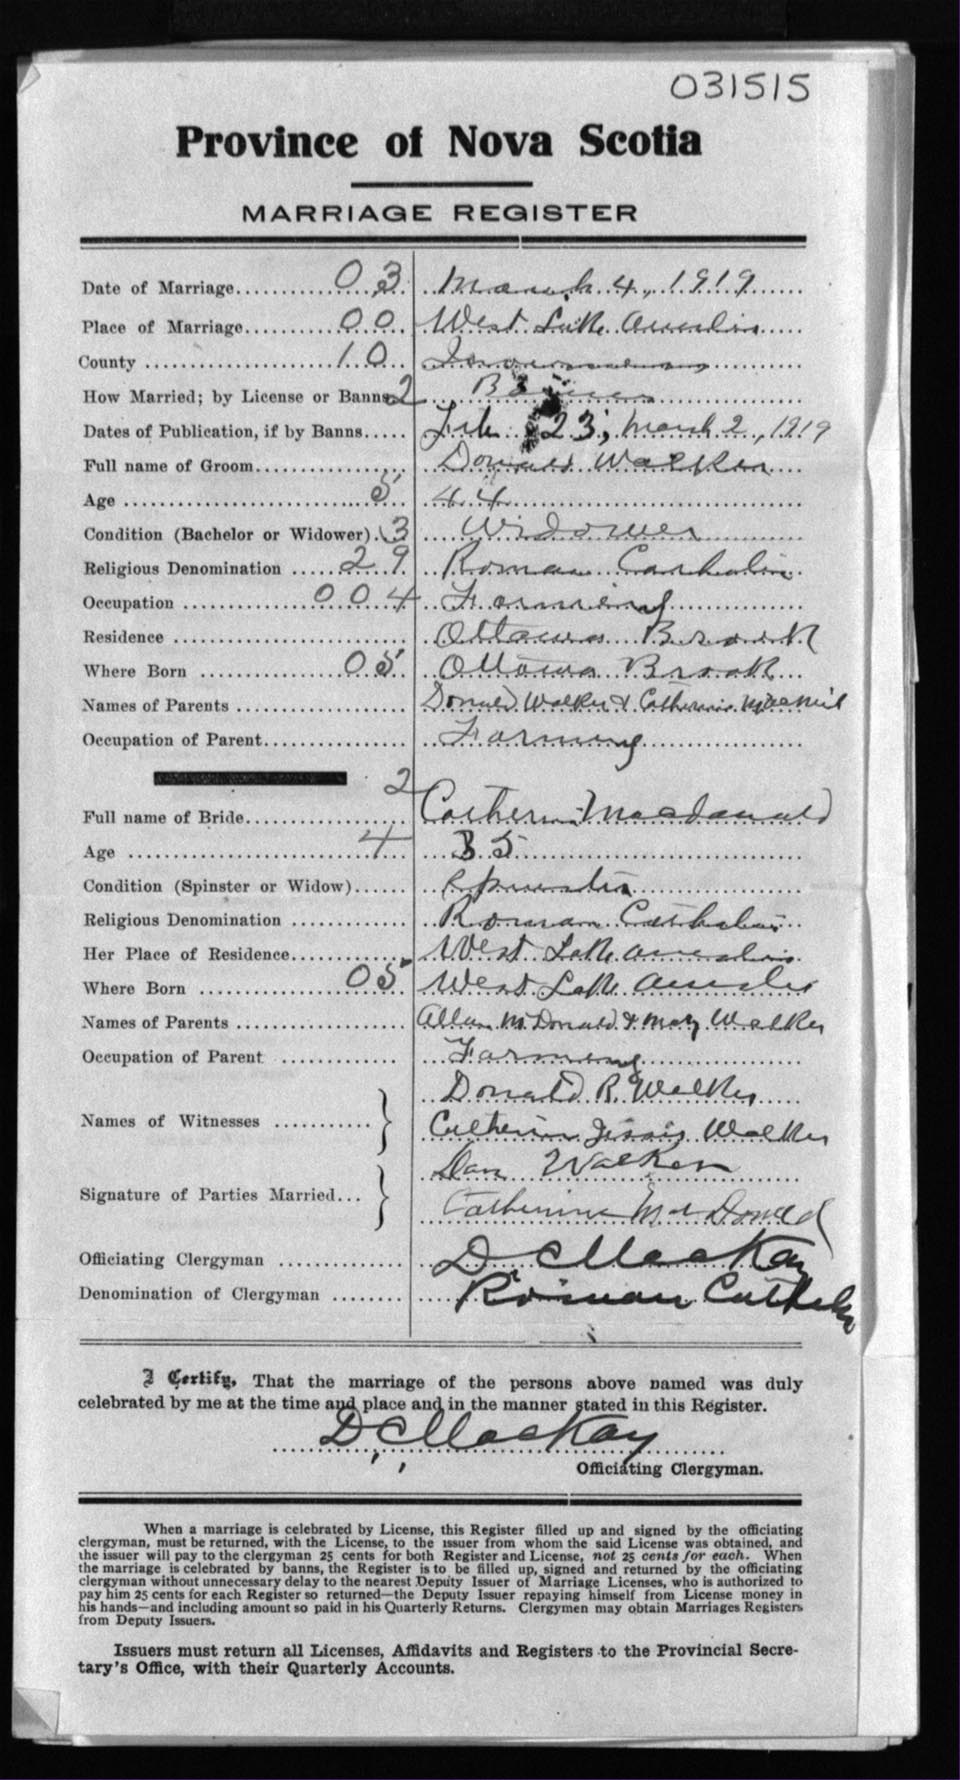 031515
Province of Nova Scotia
MARRIAGE REGISTER
Date of Marriage.......... 03 March 4, 1919
Place of Marriage.......... 00 West Lake Ainslie
County .......... 10 Inverness
How Married; by License or Banns 2 Banns
Dates of Publication, if by Banns..... Feb 23, March 2, 1919
Full name of Groom.......... Donald Walker
Age .......... 5 44
Condition (Bachelor or Widower). 3 Widower
Religious Denomination ..... 29 Roman Catholic
Occupation .......... 004 Farming
Residence .......... Ottawa Brook
Where Born .......... 05 Ottawa Brook
Names of Parents .......... Donald Walker & Catherine MacNeil
Occupation of Parent.......... Farming
2
Full name of Bride.......... Catherine Macdonald
Age .......... 4 35
Condition (Spinster or Widow)...... Spinster
Religious Denomination .......... Roman Catholic
Her Place of Residence.......... West Lake Ainslie
Where Born .......... 05 West Lake Ainslie
Names of Parents .......... Allan McDonald & Mary Walker
Occupation of Parent .......... Farming
Donald R. Walker
Names of Witnesses ..........} Catherine Jessie Walker
Dan Walker
Signature of Parties Married...} Catherine McDonald
Officiating Clergyman .......... D C MacKay
Denomination of Clergyman ........ Roman Catholic
I Certify, That the marriage of the persons above named was duly
celebrated by me at the time and place and in the manner stated in this Register.
D, C, MacKay
Officiating Clergyman.
When a marriage is celebrated by License, this Register filled up and signed by the officiating
clergyman, must be returned, with the License, to the issuer from whom the said License was obtained, and
the issuer will pay to the clergyman 25 cents for both Register and License, not 25 cents for each. When
the marriage is celebrated by banns, the Register is to be filled up, signed and returned by the officiating
clergyman without unnecessary delay to the nearest Deputy Issuer of Marriage Licenses, who is authorized to
pay him 25 cents for each Register so returned—the Deputy Issuer repaying himself from License money in
his hands—and including amount so paid in his Quarterly Returns. Clergymen may obtain Marriages Registers
from Deputy Issuers.
Issuers must return all Licenses, Affidavits and Registers to the Provincial Secre-
tary's Office, with their Quarterly Accounts.